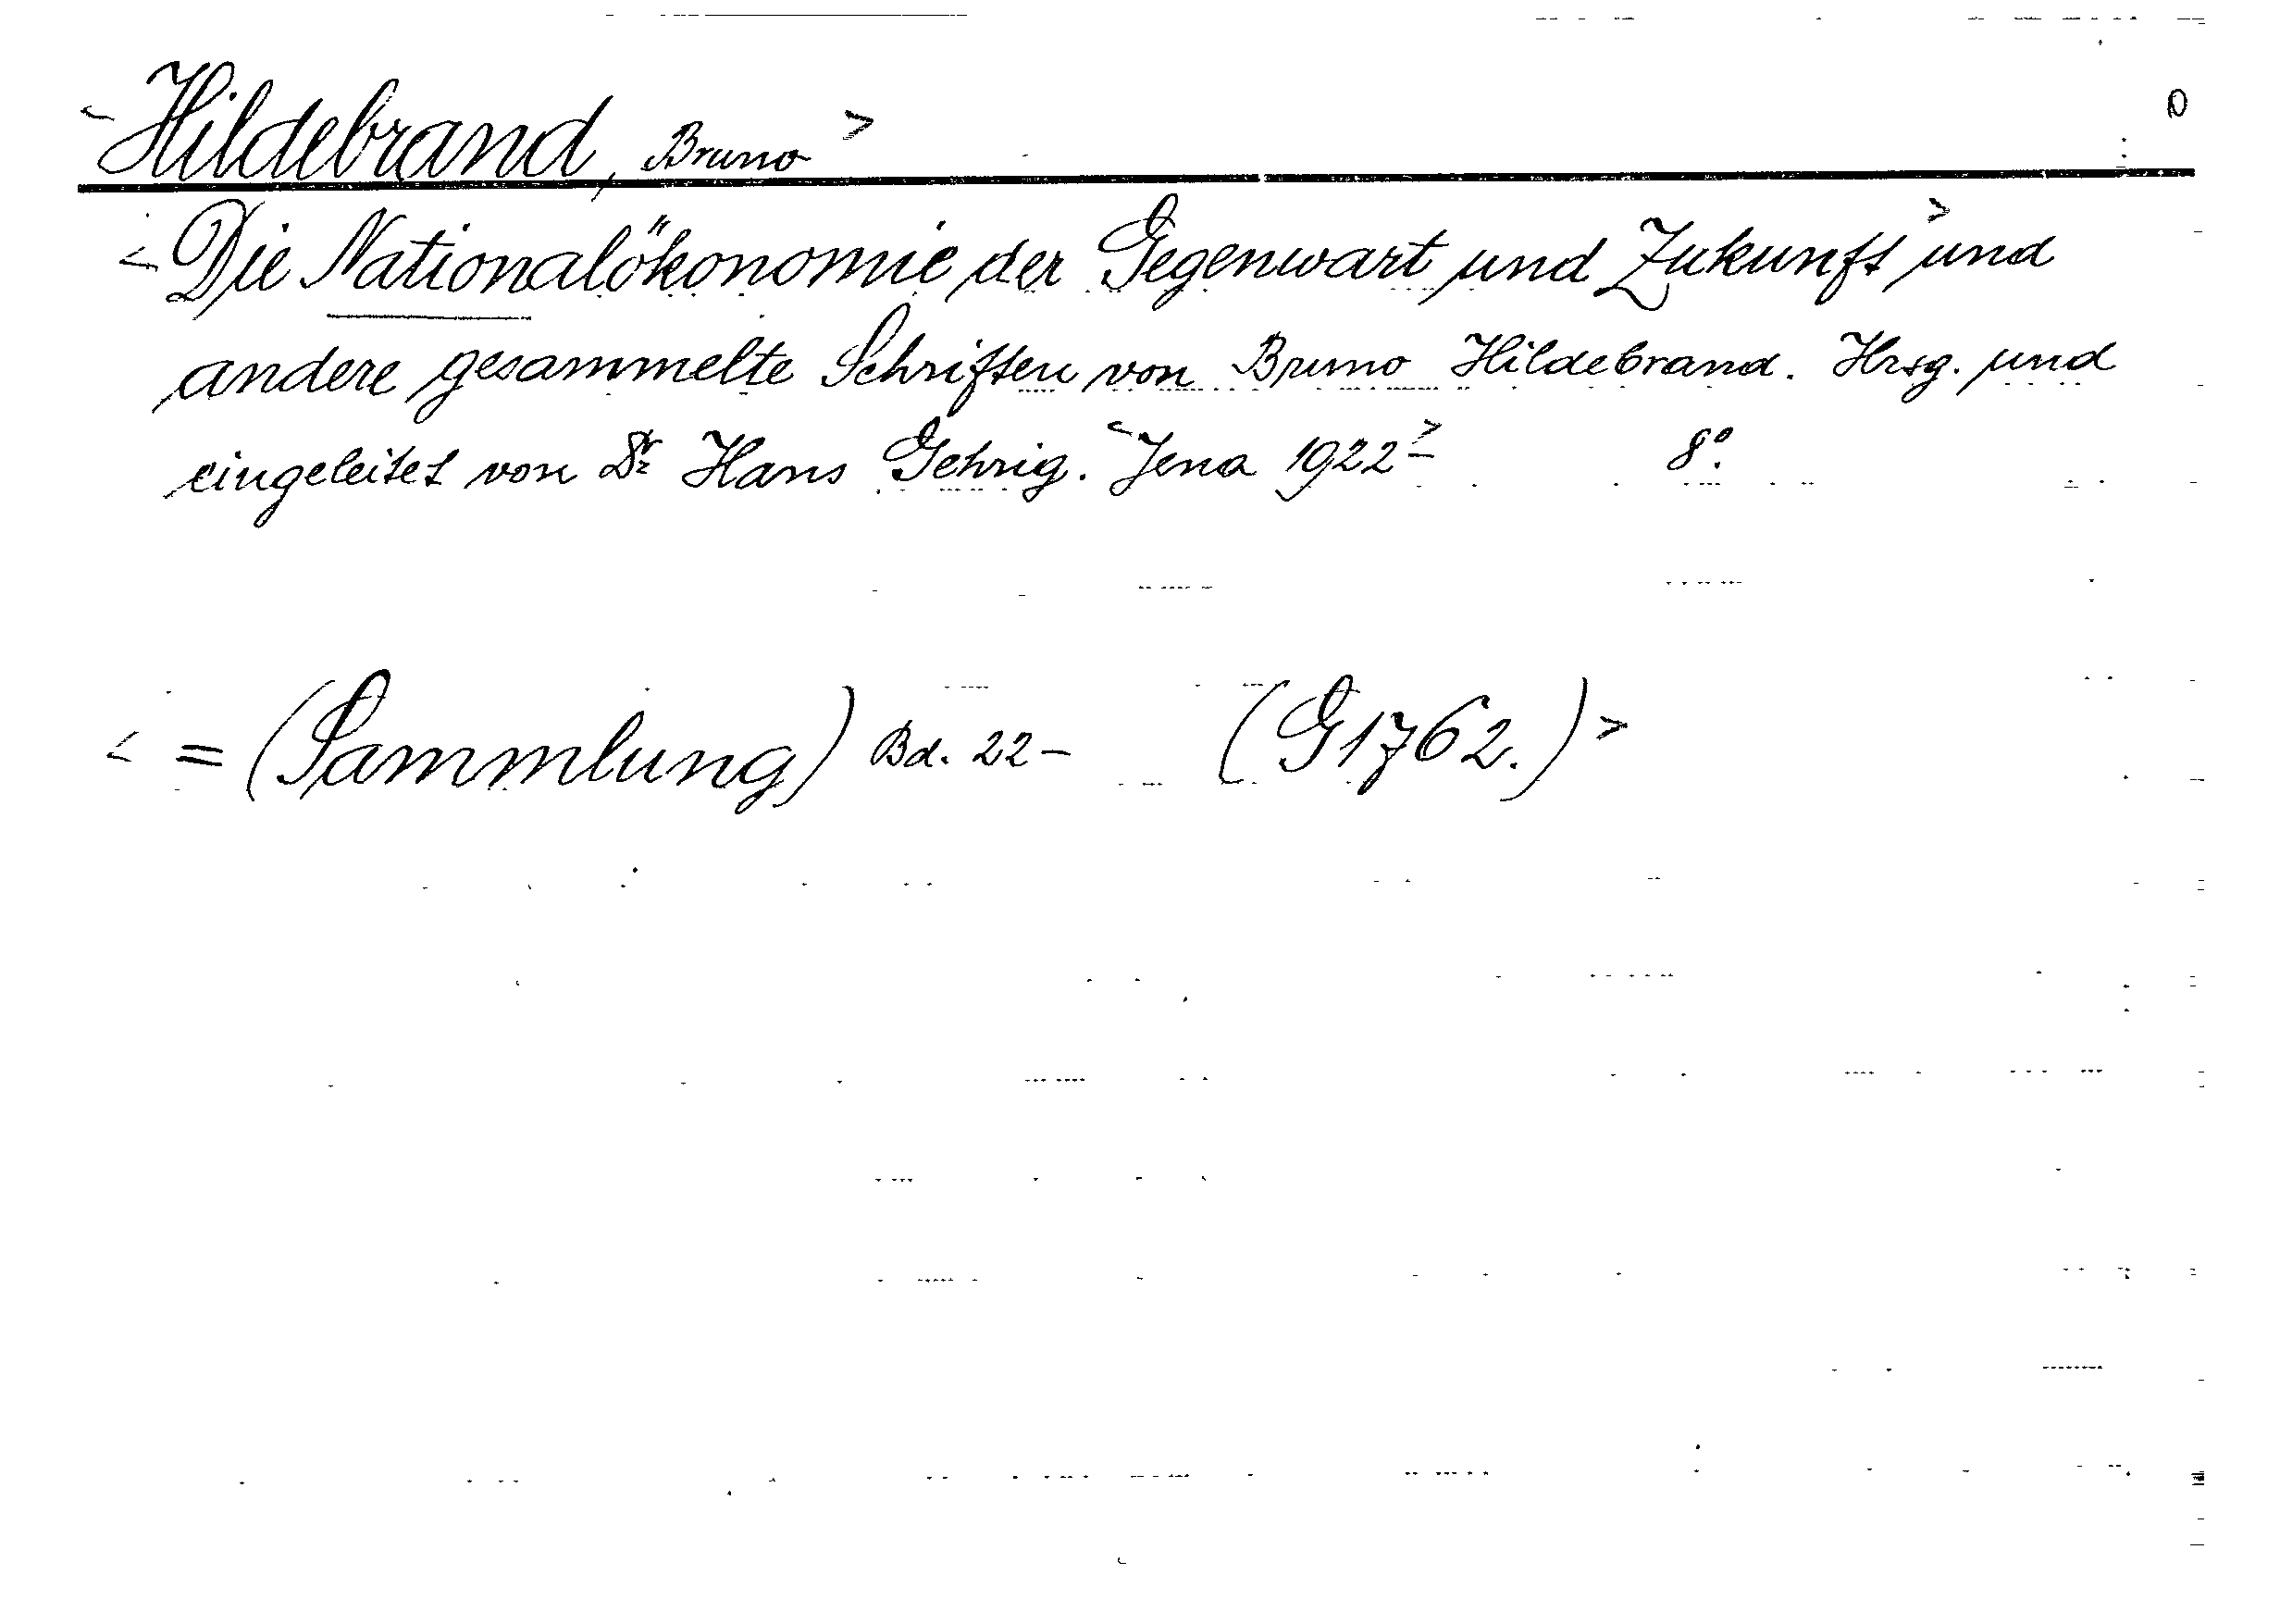 <Hildebrand, Bruno> 0
<Die Nationalökonomie der Gegenwart und Zukunft> und
andere gesammelte Schriften von Bruno Hildebrand. Hrsg. und
eingeleitet von Dr. Hans Gehrig. <Jena 1922-> 8°.
< = (Sammlung) Bd. 22- (G1762.)>